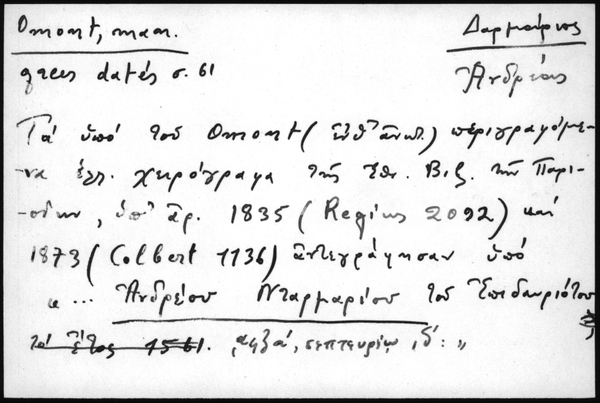 Omont, man.
Δαρμάριος
grecs datés σ. 61
Ἀνδρέας
Τά ὑπό τοῦ Omont (ἔνθ' ἀνωτ.) περιγραφόμε-
-να ἑλ. χειρόγραφα τῆς Ἐθν. Βιβ. τῶν Παρι-
-σίων, ὑπ' ἀρ. 1835 (Regius 2092) καί
1873 (Colbert 1136) ἀντεγράφησαν ὑπό
"... Ἀνδρέου Νταρμαρίου τοῦ Ἐπιδαυριότου
τό ἔτος 1561. ͵αφξα', σεπτευρίῳ, δ': "